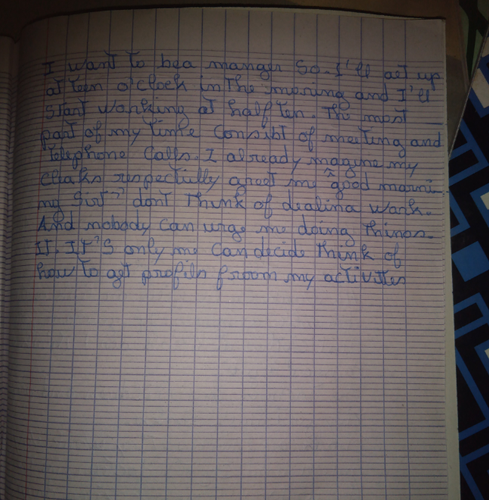 I want to be a manger so I'll get up
at ten o'clock in the morning and I'll
start warking at half ten. The most
part of my time consist of meeting and
telephone calls. I already magine my
claks respectially greet me "good morni-
ng Sir" I don't think of dealing wark.
And nobody can urge me doing things.
It. It's only me can decide think of
how to get profils from my activites